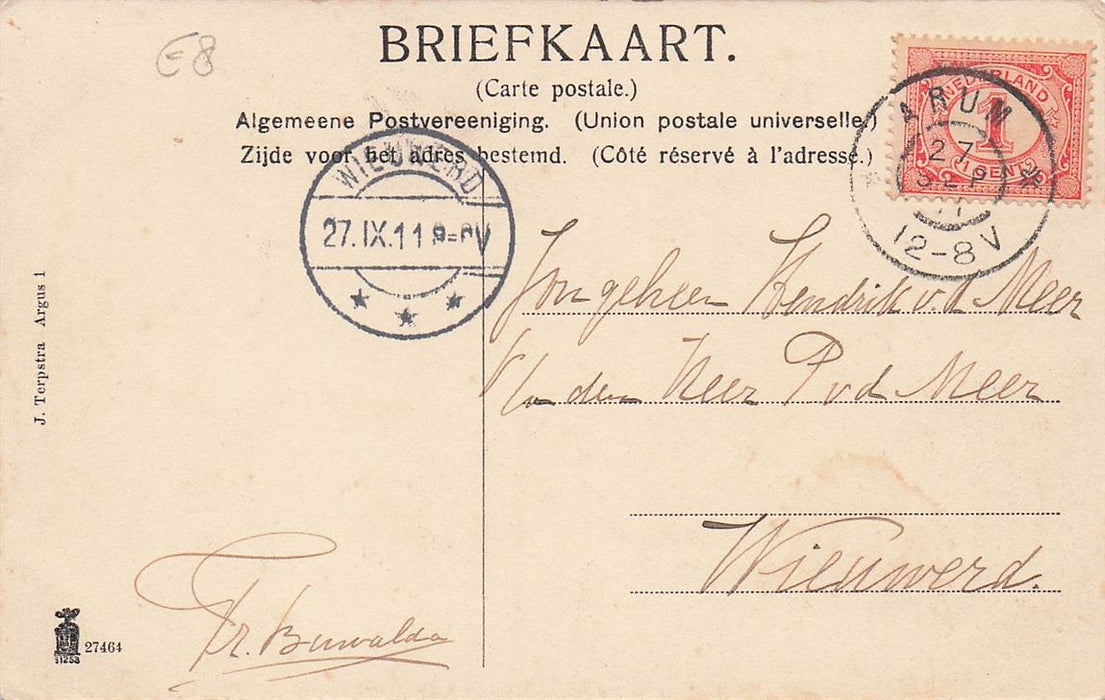 E8
BRIEFKAART.
(Carte postale.)
Algemeene Postvereeniging. (Union postale universelle.)
Zijde voor het adres bestemd. (Côté réservé à l'adresse.)
NEDERLAND
1
1 CENT
ARUM
27
SEP
11
12-8V
WIEUWERD
27.IX.11 8-9V
Jongeheer Hendrik v.d. Meer
den Heer P v d Meer
Wieuwerd.
J. Terpstra Argus 1
Fr. Buwalda
27464
11253